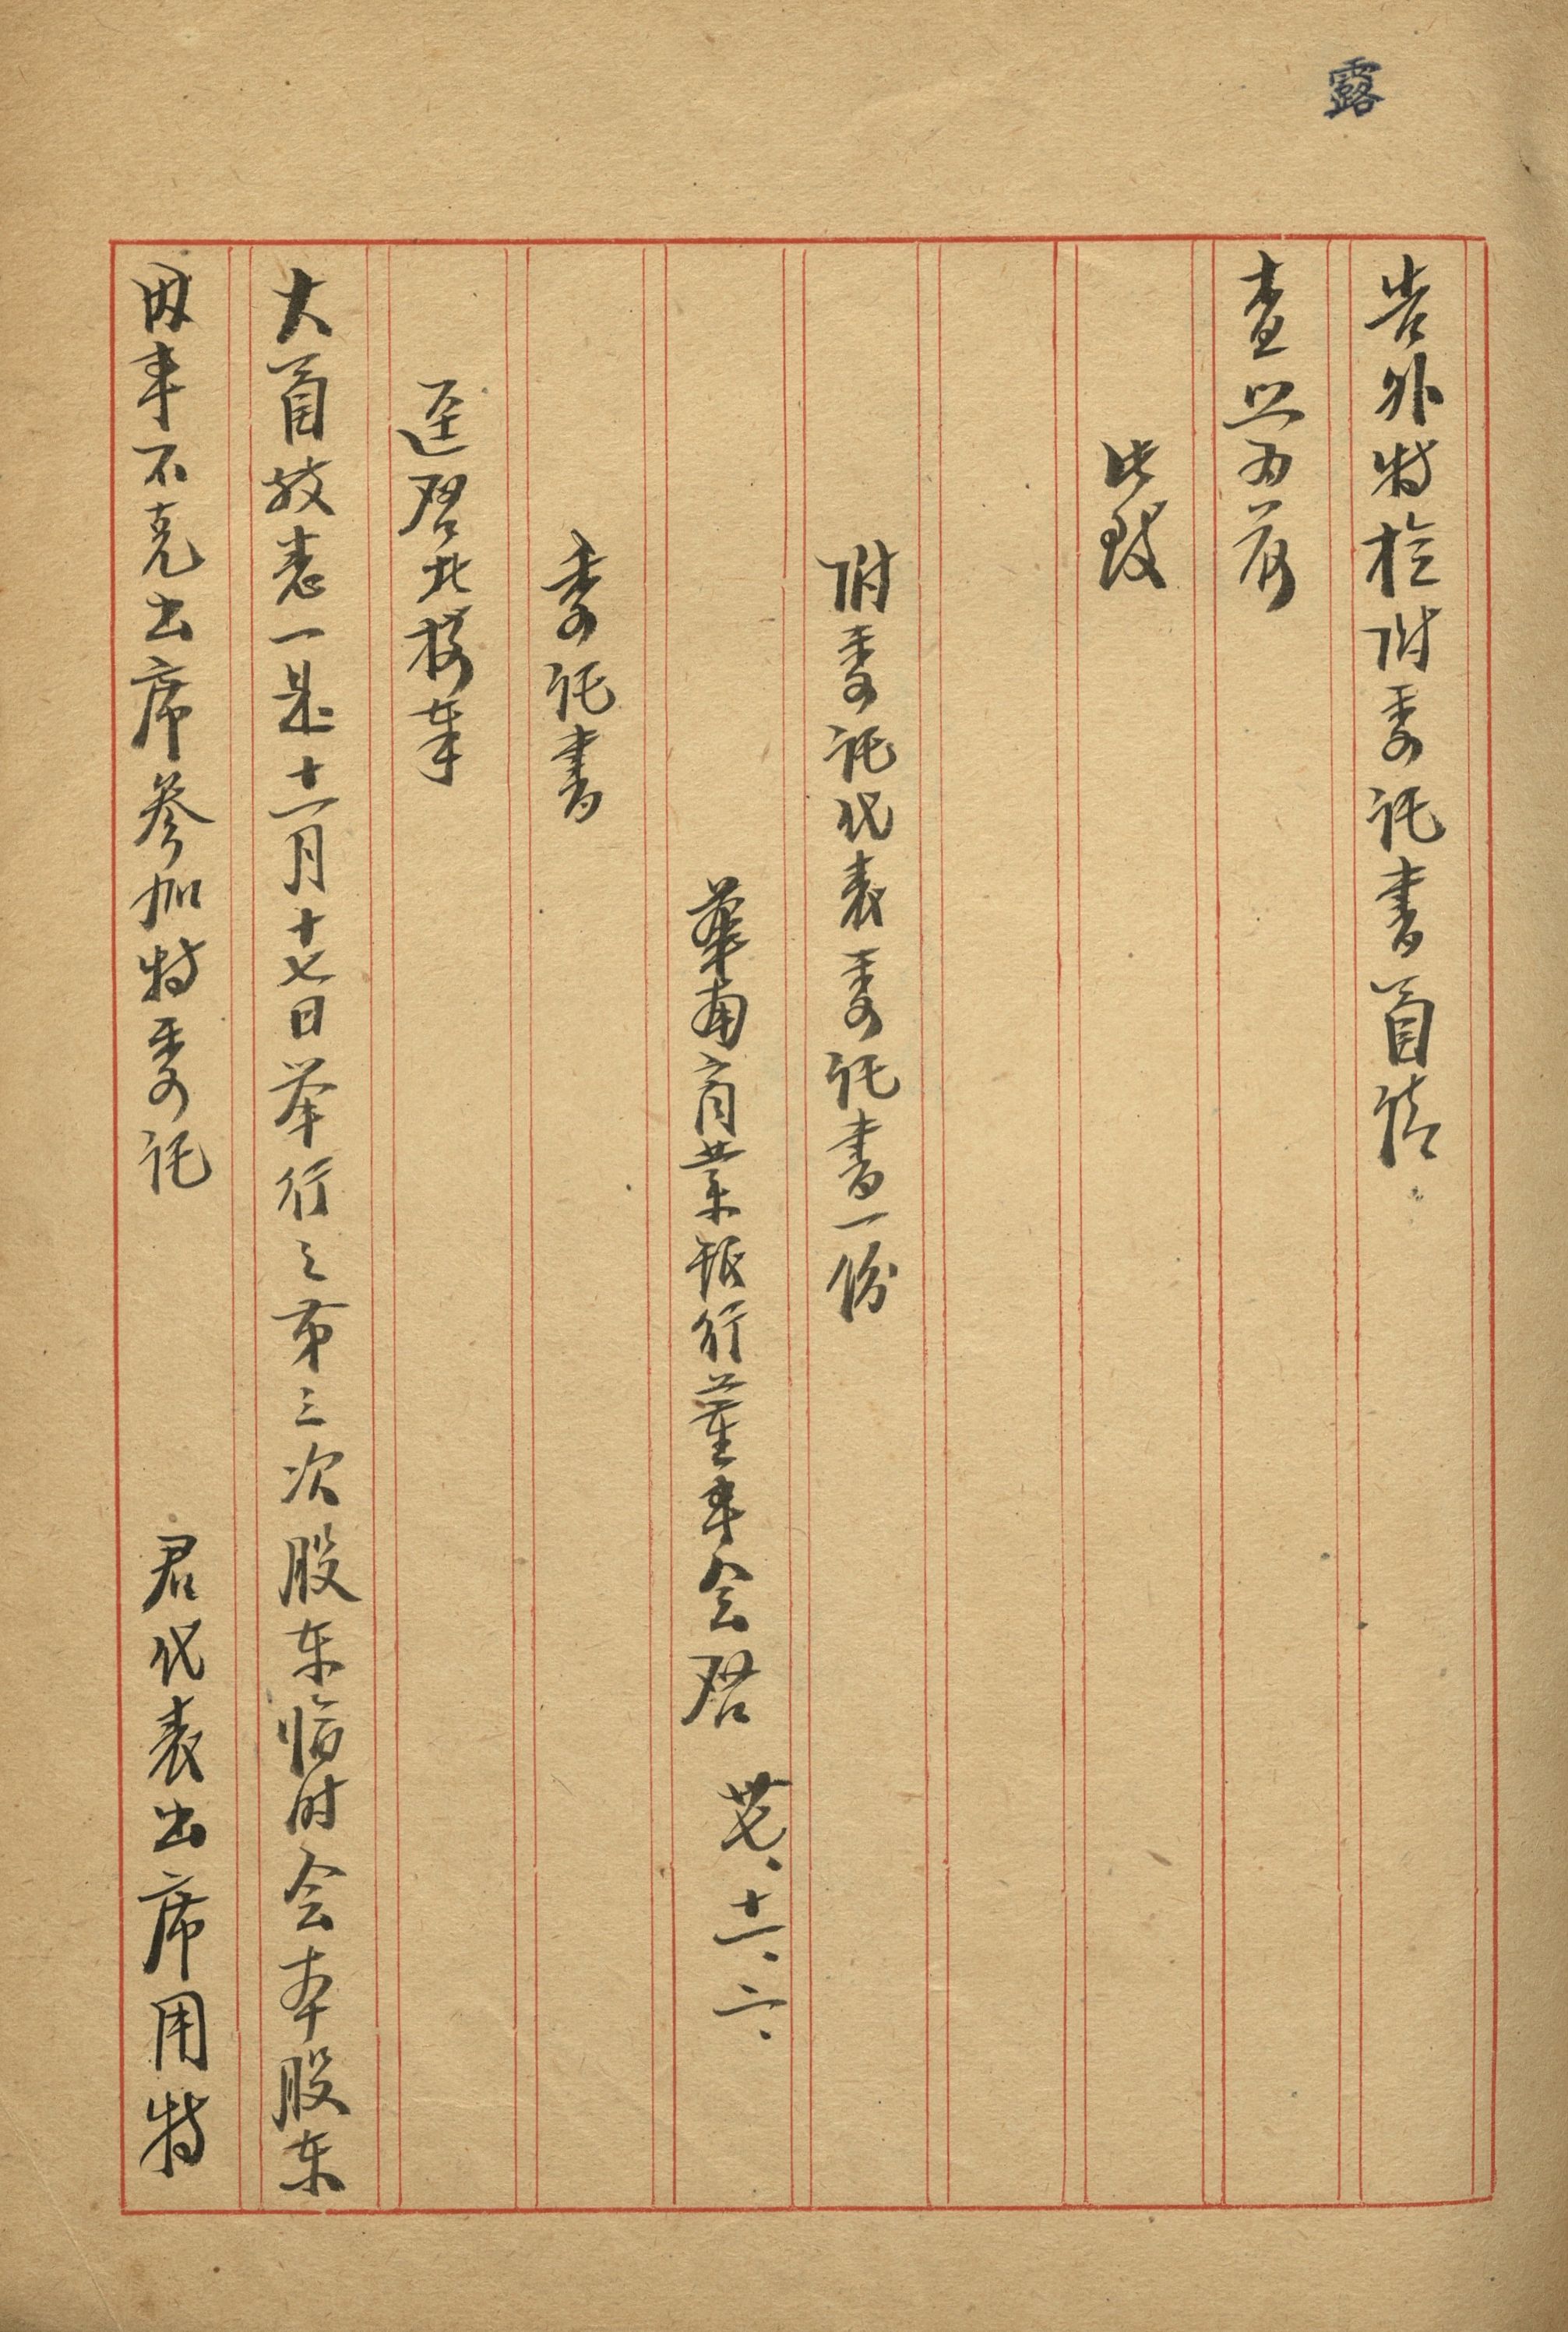 露
告外特检附委託書函請
查照为荷
此致
附委託代表委託書一份
華南商業銀行董事会啓 卅七、十一、二、
委託書
逕啓者接奉
大函敬悉一是十一月十七日举行之第三次股东临时会本股东
因事不克出席參加特委託 君代表出席用特